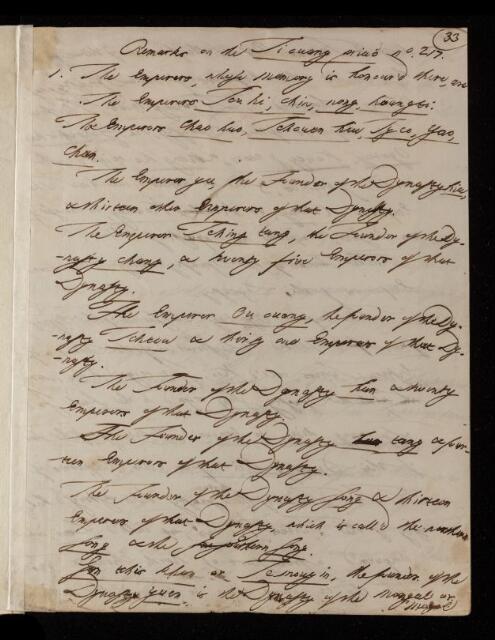 33
Remarks on the Ti ouang miao no. 217.
1. The Emperors, whose memory is honour'd there, are
The Emperors Fou hi, chin, nong, hoangti:
The Emperors Chao hao, Tchuen hiu, Ty co, yao,
Chun.
The Emperor yu the Founder of the Dynasty hia,
& thirteen other Emperors of that Dynasty.
The Emperor Tching tang, the Founder of the Dy-
-nasty chang, & twenty five Emperors of that
Dynasty.
The Emperor Ou ouang, the founder of the Dy-
-nasty Tcheou & thirty one Emperors of that Dy-
-nasty.
The Founder of the Dynasty han & twenty
Emperors of that Dynasty.
The Founder of the Dynasty tang & four-
teen Emperors of that Dynasty.
The Founder of the Dynasty song & thirteen
Emperors of that Dynasty, which is call'd the northern
song & the southern song.
khan or the founder of the
Dynasty yuen, is the Dynasty of the Mongol or
Mogol